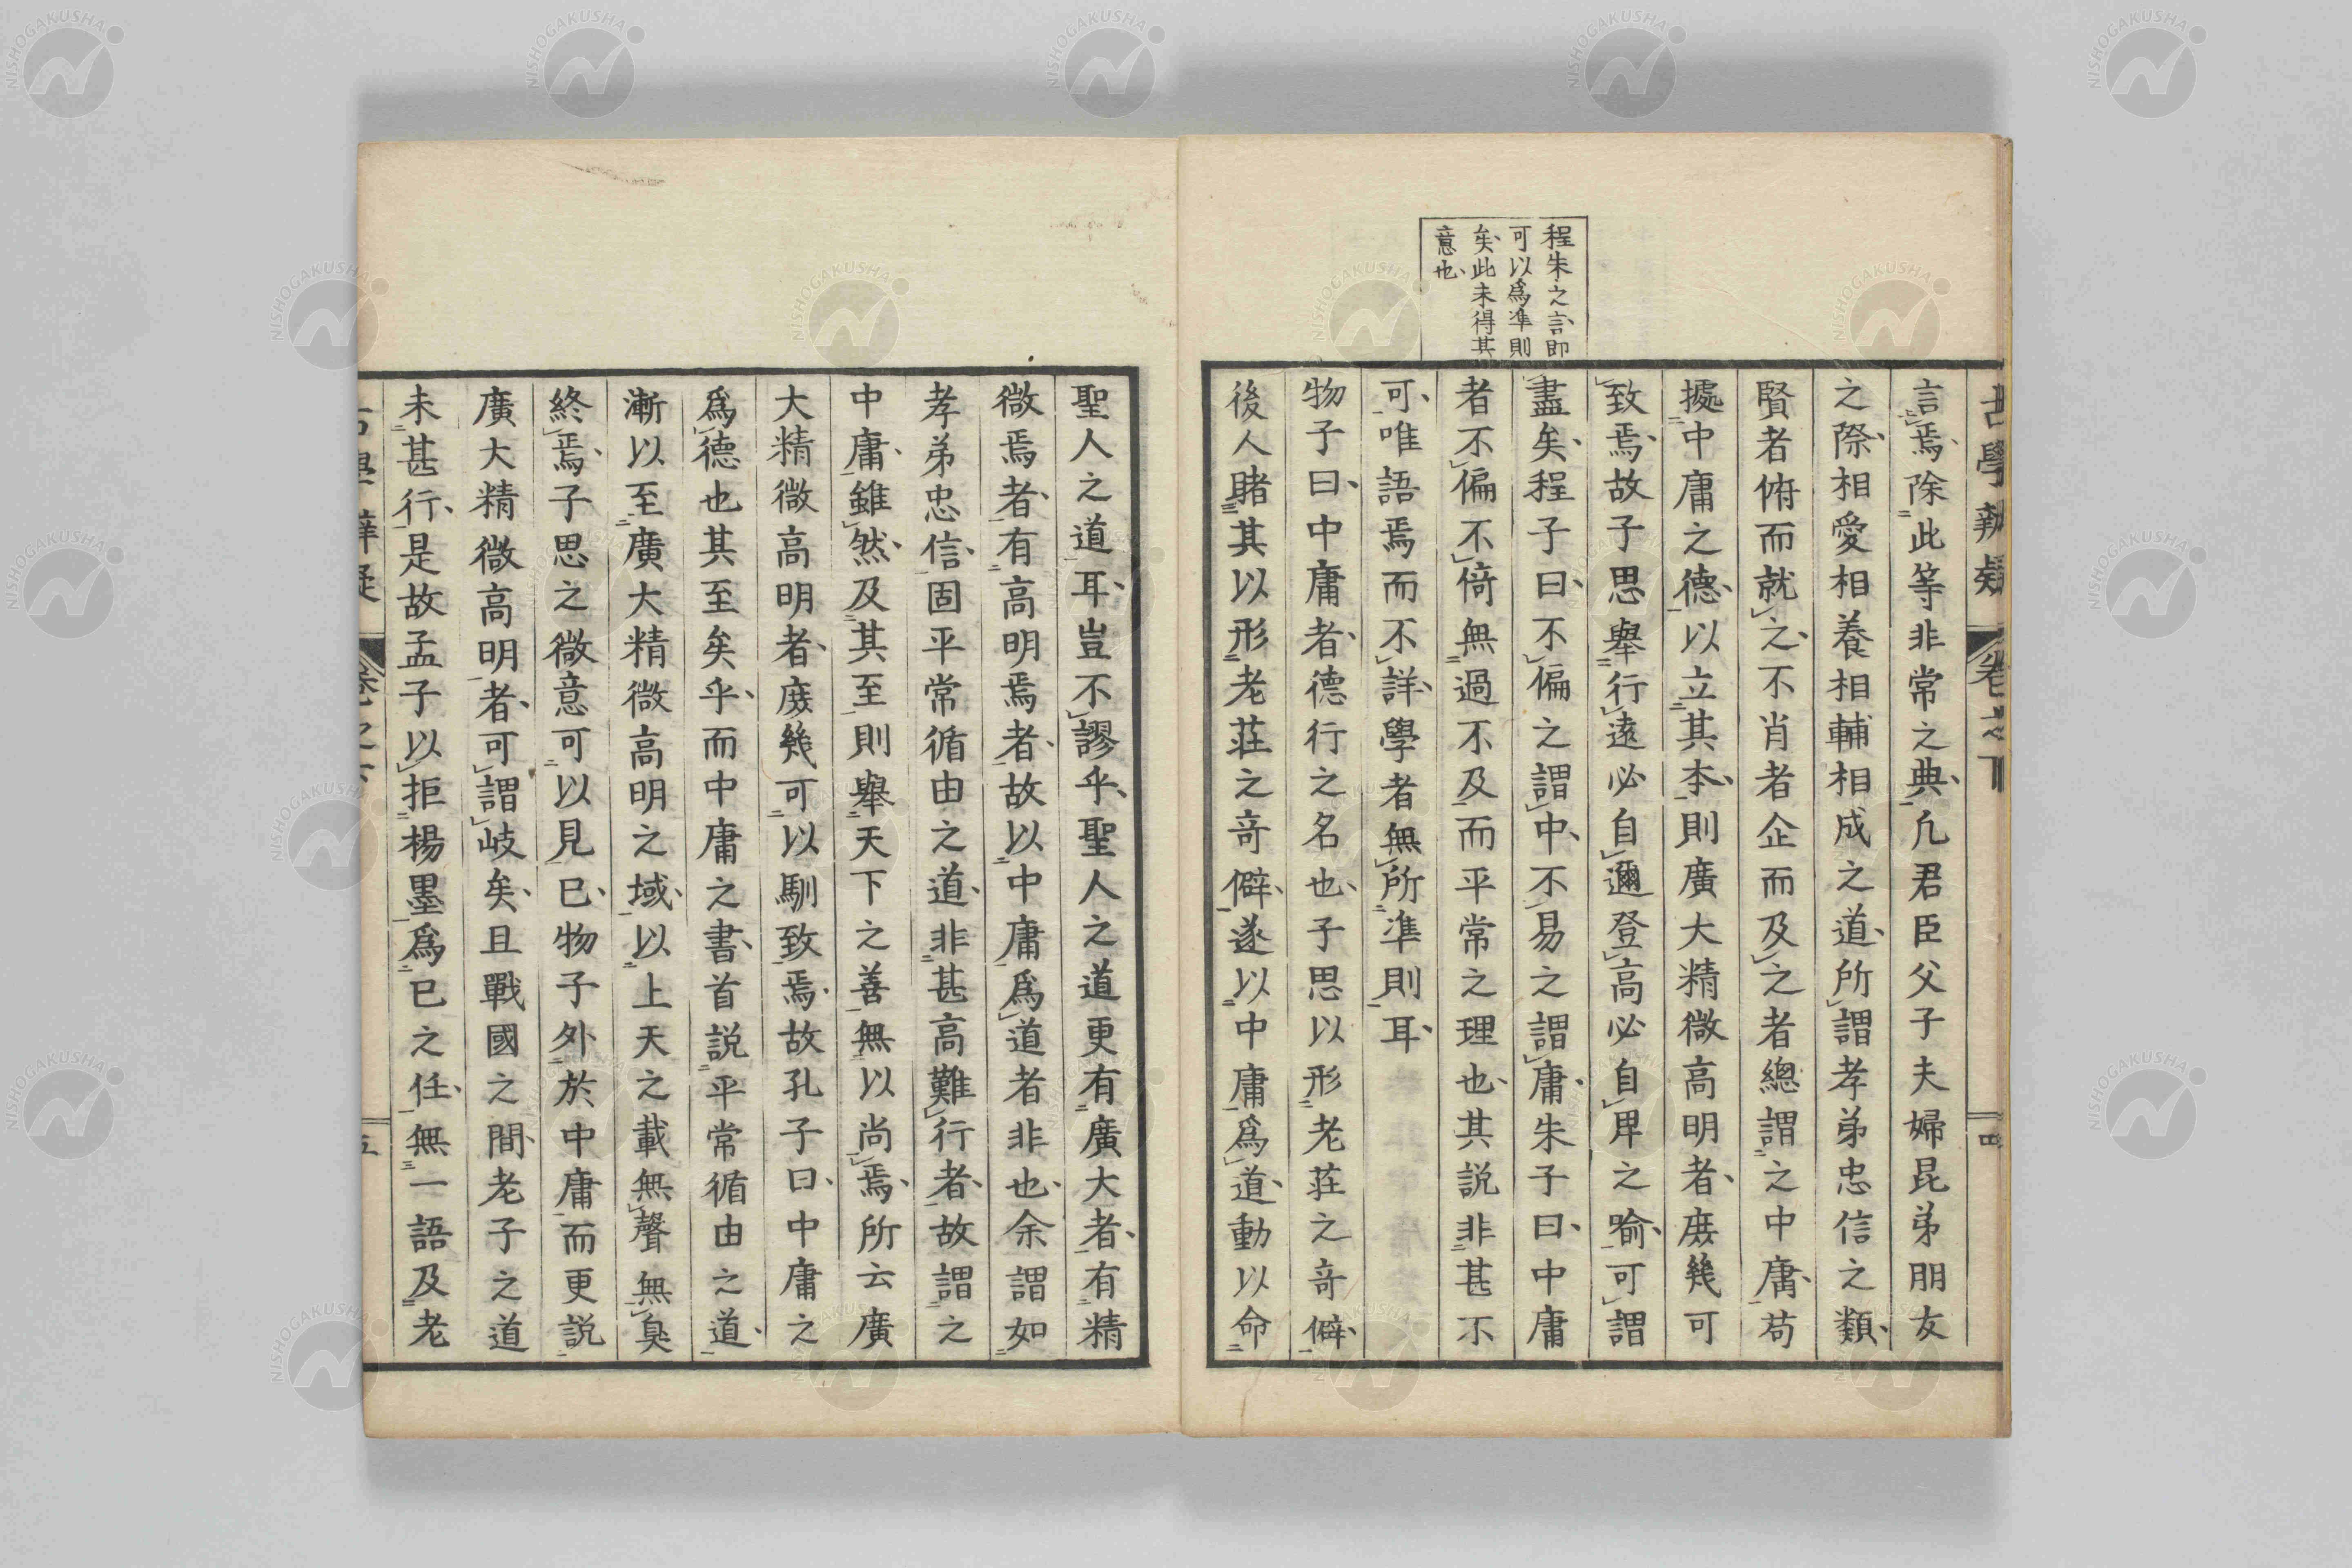 古學辨疑 卷之下 四
言焉除此等非常之典凢君臣父子夫婦昆弟朋友
之際相愛相養相輔相成之道所謂孝弟忠信之類
賢者俯而就之不肖者企而及之者總謂之中庸苟
據中庸之德以立其本則廣大精微高明者庶幾可
致焉故子思舉行遠必自邇登高必自卑之喻可謂
盡矣程子曰不偏之謂中不易之謂庸朱子曰中庸
者不偏不倚無過不及而平常之理也其説非甚不
可唯語焉而不詳學者無所準則耳
物子曰中庸者德行之名也子思以形老莊之竒僻
後人賭其以形老莊之竒僻遂以中庸爲道動以命
程朱之言即
可以爲準則
矣此未得其
意也
聖人之道耳豈不謬乎聖人之道更有廣大者有精
微焉者有高明焉者故以中庸爲道者非也余謂如
孝弟忠信固平常循由之道非甚高難行者故謂之
中庸雖然及其至則舉天下之善無以尚焉所云廣
大精微高明者庶幾可以馴致焉故孔子曰中庸之
爲德也其至矣乎而中庸之書首説平常循由之道
漸以至廣大精微高明之域以上天之載無聲無臭
終焉子思之微意可以見已物子外於中庸而更説
廣大精微高明者可謂岐矣且戰國之間老子之道
未甚行是故孟子以拒楊墨爲已之任無一語及老
五
NISHOGAKUSHA